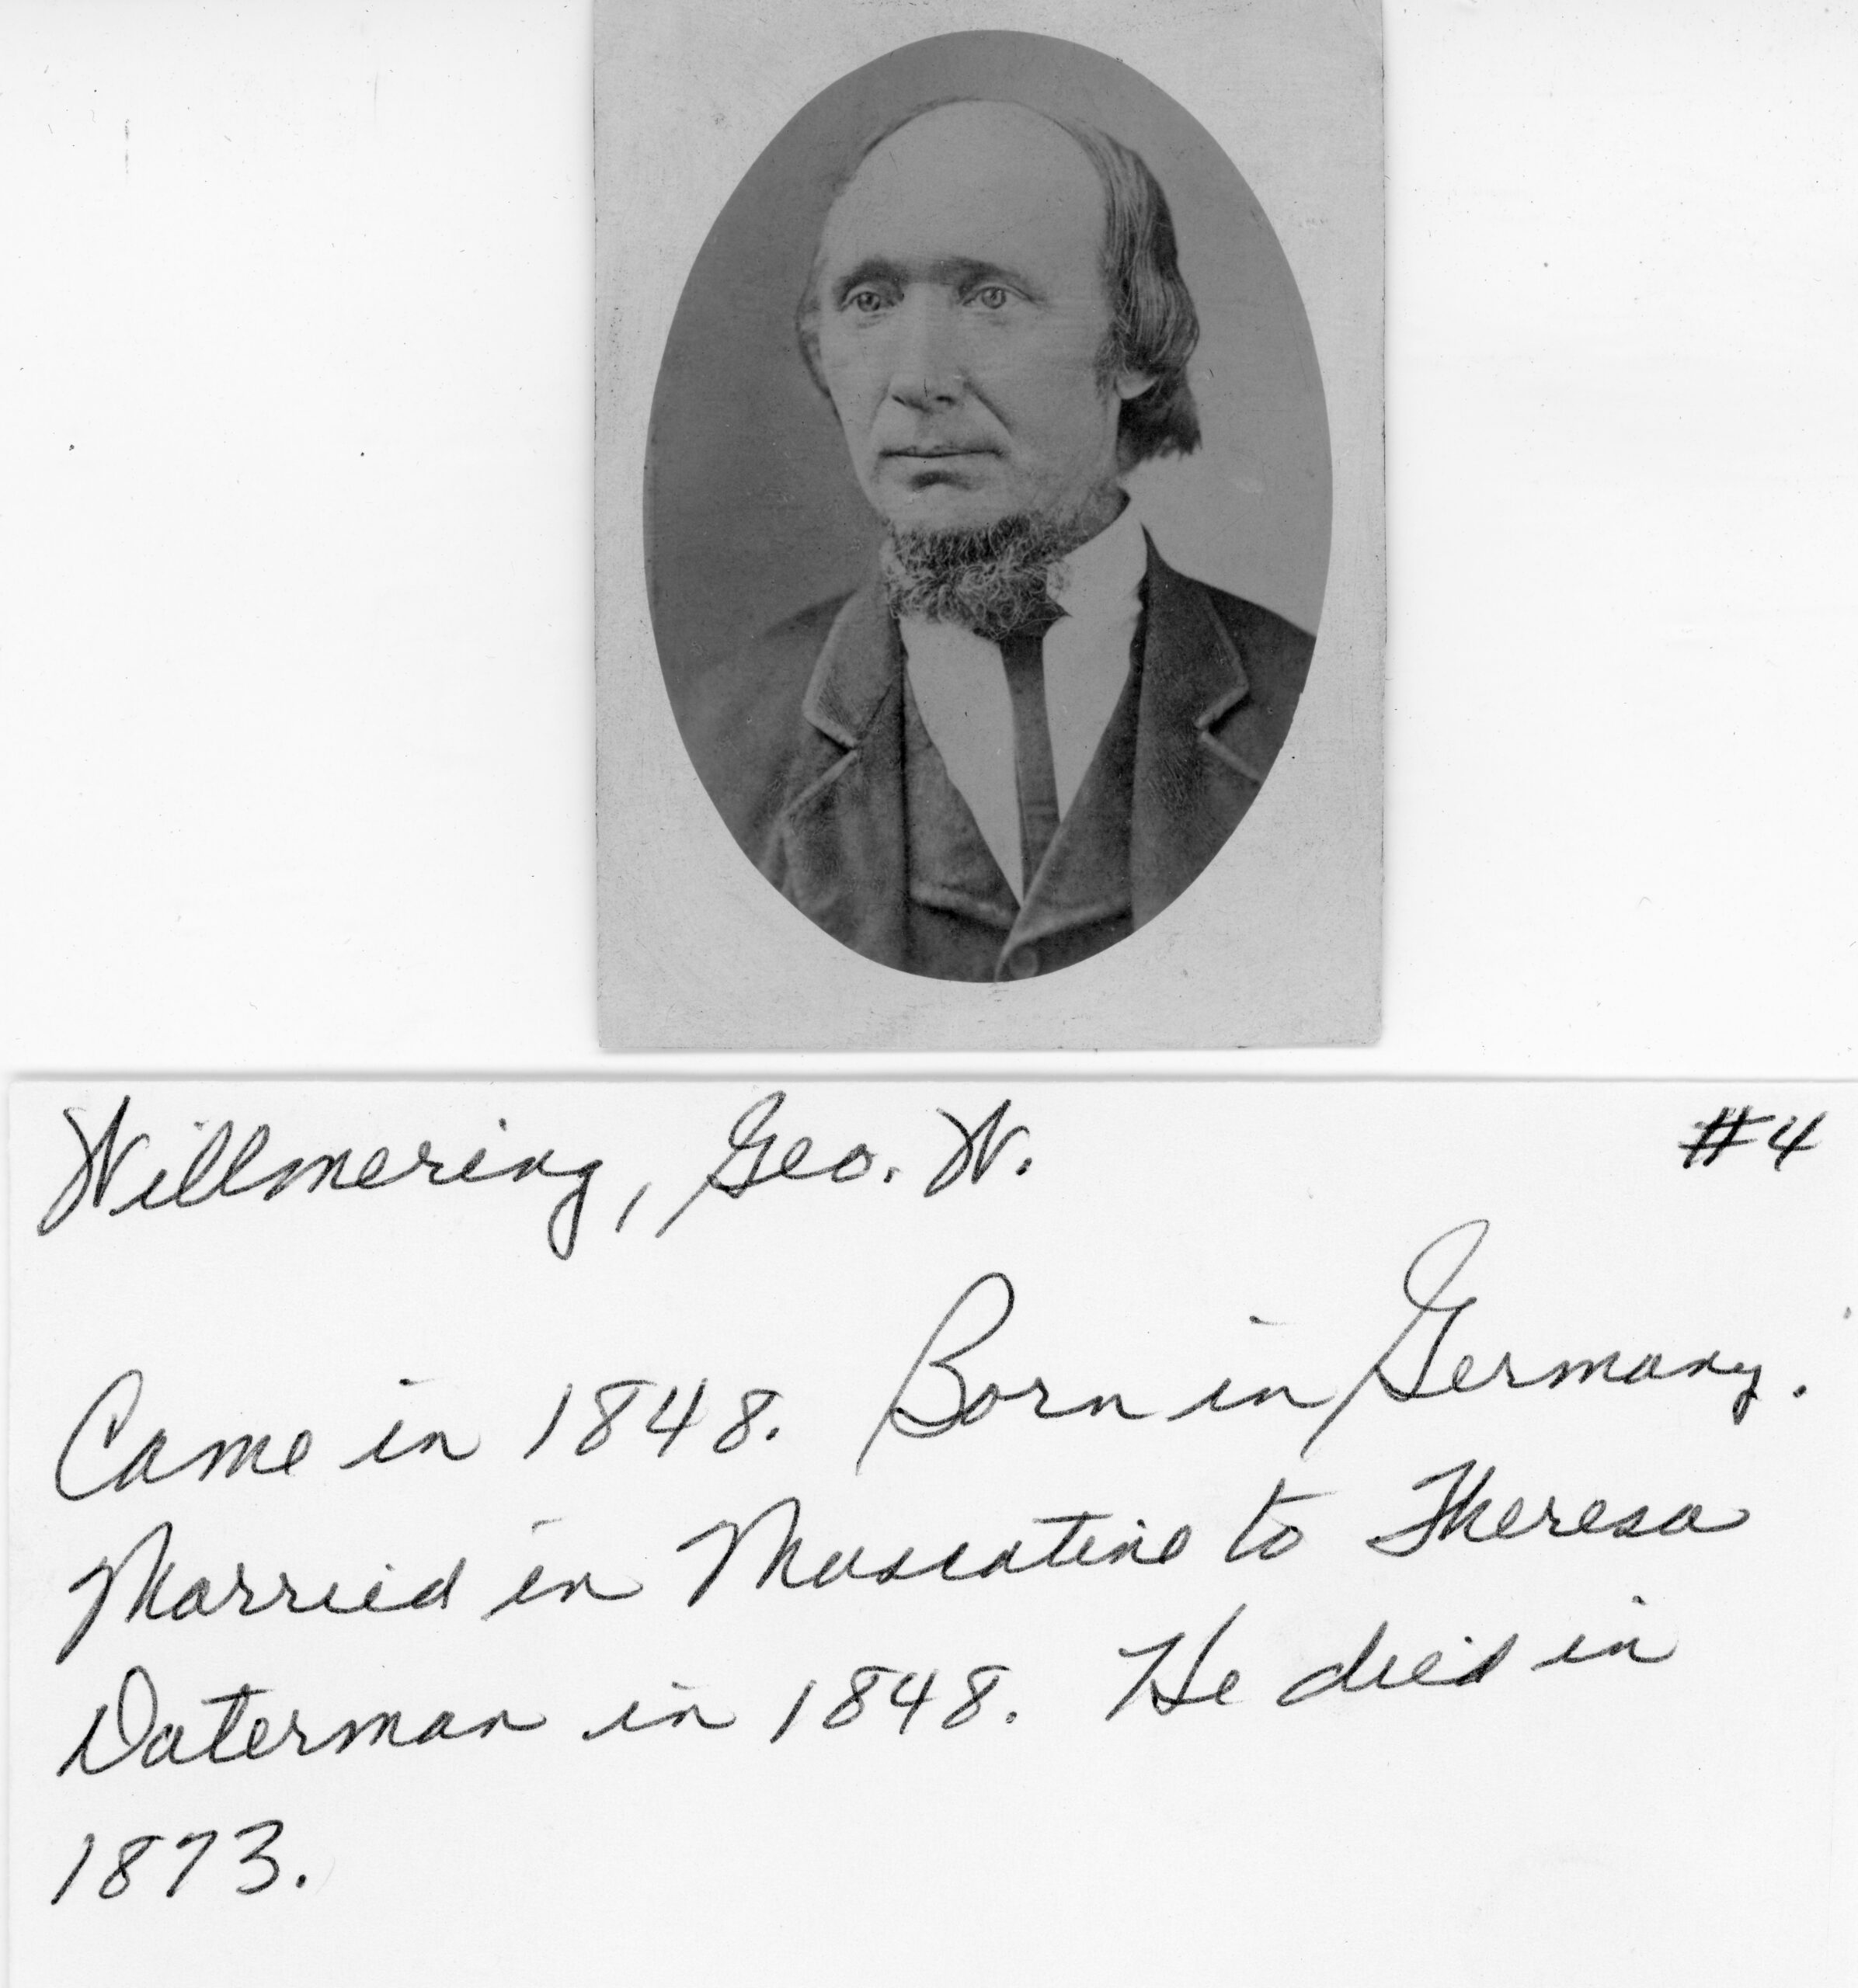 Willmering, Geo. W. #4
Came in 1848. Born in Germany.
Married in Muscatine to Theresa
Daterman in 1848. He died in
1873.